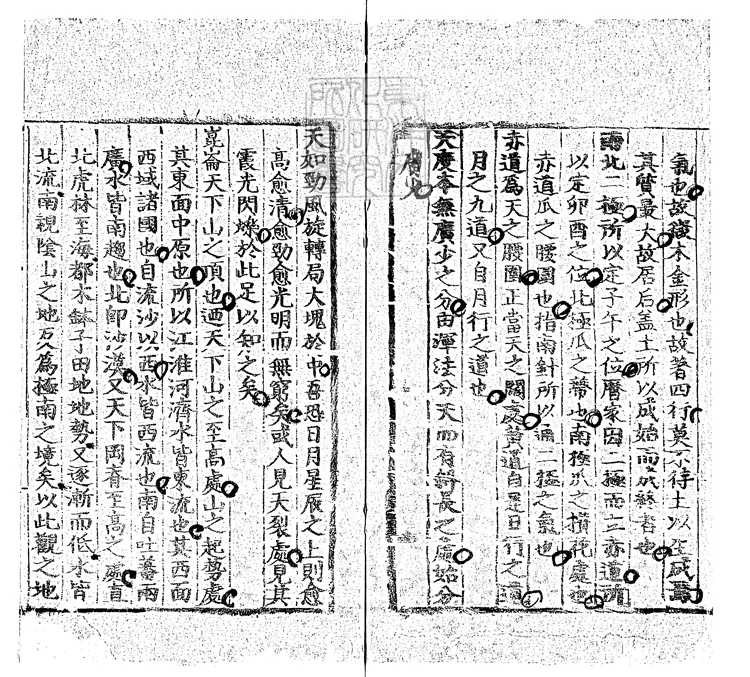 氣也故穫木金形也故著四行莫不待土以生成焉
其質最大故居后盖土所以成始而成終者也
南北二極所以定子午之位曆家因二極而立赤道所
以定卯酉之位北極瓜之蔕也南極瓜之攅花處也
赤道瓜之腰圍也指南針所以通二極之氣也
赤道爲天之腰圍正當天之闊處黃道自是日行之道
月之九道又自月行之道也
天度本無廣少之分由渾法分天而有 長之 始分
度也
天如勁風旋轉局大塊於中吾恐日月星辰之上則愈
高愈清愈勁愈光明而無窮矣或人見天裂處見其
霞光閃爍於此足以知之矣
崑崙天下山之頂也迺天下山之至高處山之起勢處
其東面中原也所以江淮河濟水皆東流也其西面
西域諸國也自流沙以西水皆西流也南自吐蕃兩
廣水皆南趨也北卽沙漠又天下岡脊至高之處直
北虎林至海都木鉢子田地地勢又逐漸而低水皆
北流南視陰山之地乃爲極南之境矣以此觀之地